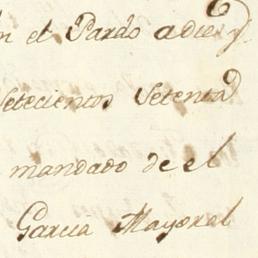 n el Pardo a diez y
Setecientos Setenta
mandado de el
García Mayoral